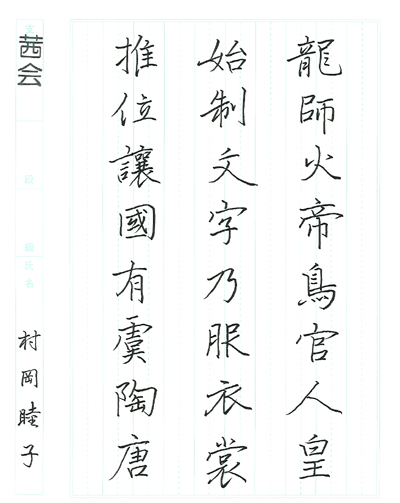 龍師火帝鳥官人皇
始制文字乃服衣裳
推位讓國有虞陶唐
茜会
段
級
氏名
村岡睦子